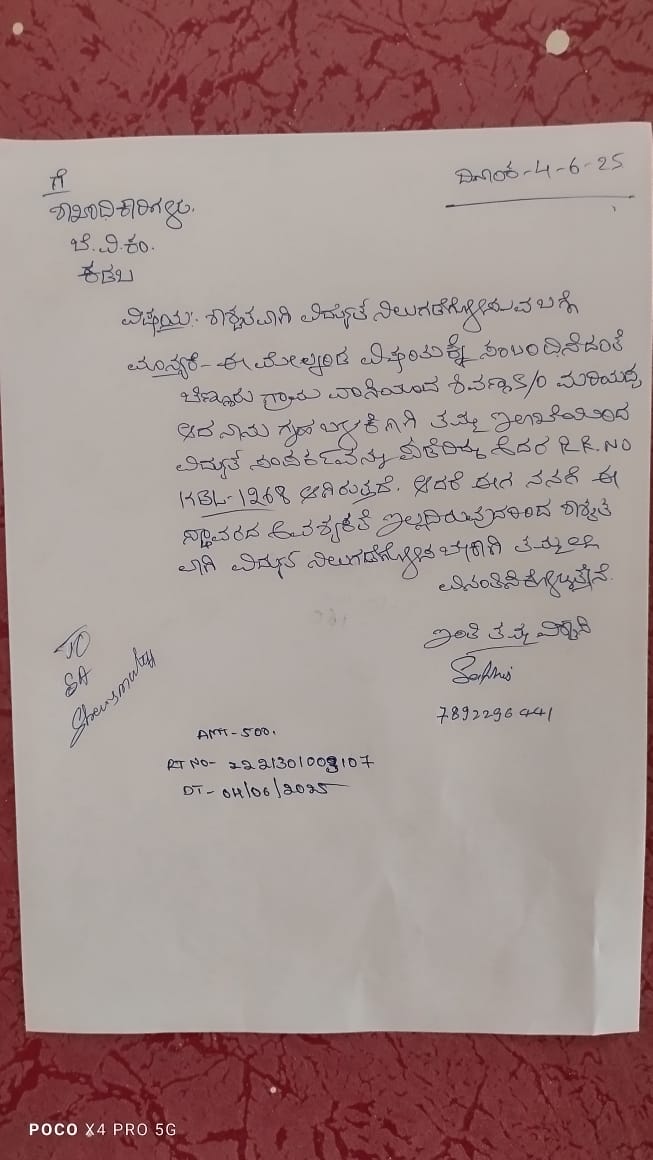 ಗೆ
ದಿನಾಂಕ-4-6-25
ಶಾಖಾಧಿಕಾರಿಗಳು.
ಬೆ.ವಿ.ಕಂ.
ಕಡಬ
ವಿಷಯ:- ಶಾಶ್ವತವಾಗಿ ವಿದ್ಯುತ್ ನಿಲುಗಡೆಗೊಳಿಸುವ ಬಗ್ಗೆ
ಮಾನ್ಯರೆ- ಈ ಮೇಲ್ಕಂಡ ವಿಷಯಕ್ಕೆ ಸಂಬಂಧಿಸಿದಂತೆ
ಗ್ರಾಮ ವಾಸಿಯಾದ ಶಿವಣ್ಣ S/O ಮರಿಯಪ್ಪ
ಆದ ನಾನು ಗೃಹ ಬಳಕೆಗಾಗಿ ತಮ್ಮ ಇಲಾಖೆಯಿಂದ
ವಿದ್ಯುತ್ ಸಂಪರ್ಕವನ್ನು ಪಡೆದಿದ್ದು ಇದರ R.R.NO
KBL-1268 ಆಗಿರುತ್ತದೆ. ಆದರೆ ಈಗ ನನಗೆ ಈ
ಸ್ಥಾವರದ ಅವಶ್ಯಕತೆ ಇಲ್ಲದಿರುವುದರಿಂದ ಶಾಶ್ವತ
ವಾಗಿ ವಿದ್ಯುತ್ ನಿಲುಗಡೆಗೊಳಿಸ ಬೇಕಾಗಿ ತಮ್ಮಲ್ಲಿ
ವಿನಂತಿಸಿಕೊಳ್ಳುತ್ತೇನೆ.
ಇಂತಿ ತಮ್ಮ ವಿಶ್ವಾಸಿ
7892296441
TO
SA
AMT-500.
RT NO- 2221301003107
DT- 04/06/2025
POCO X4 PRO 5G